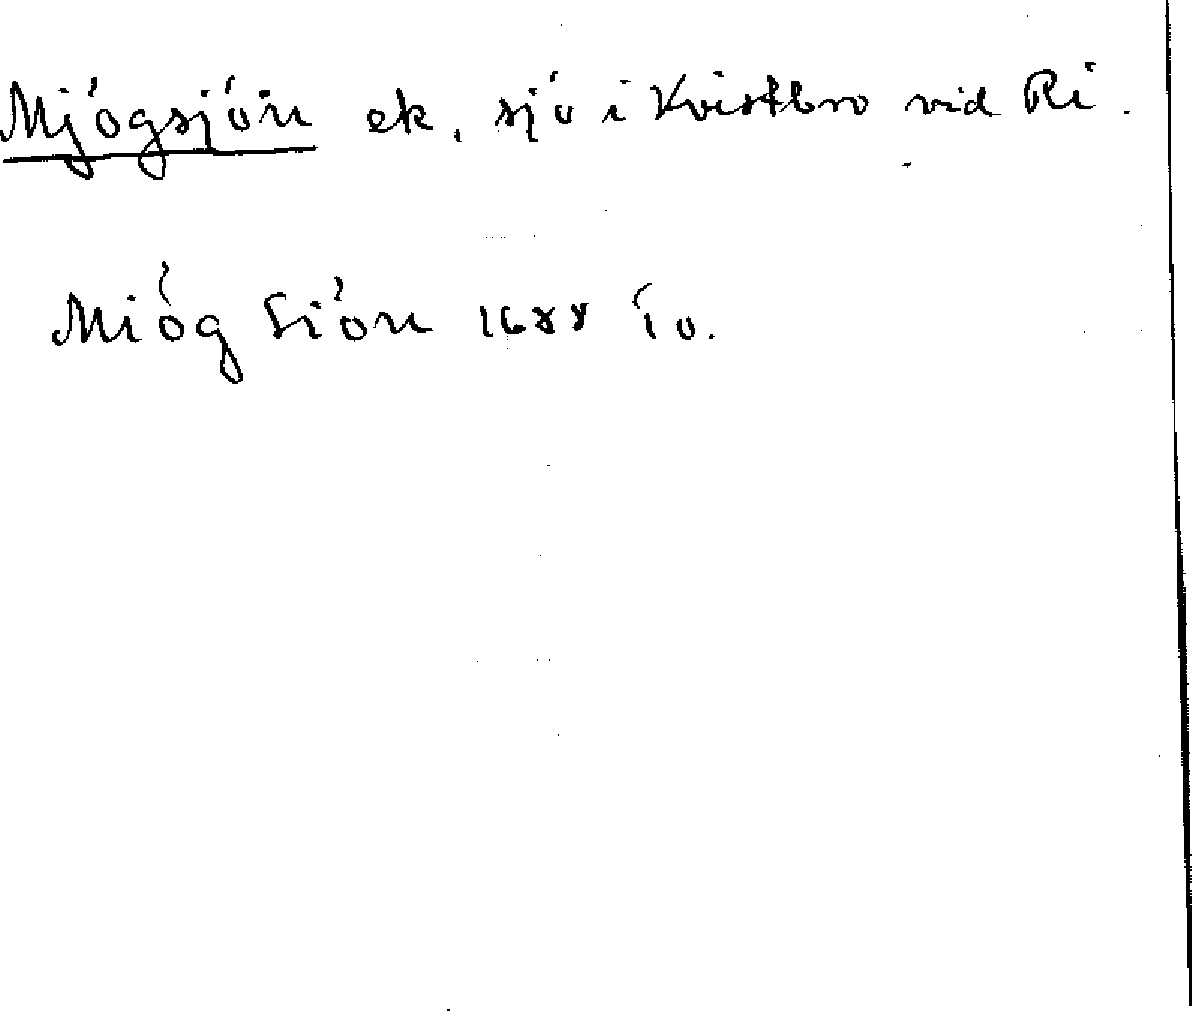 Mjógsjón ek, sjö i Kvistbro vid Ri.
Mióg Sión 1688 Iv.